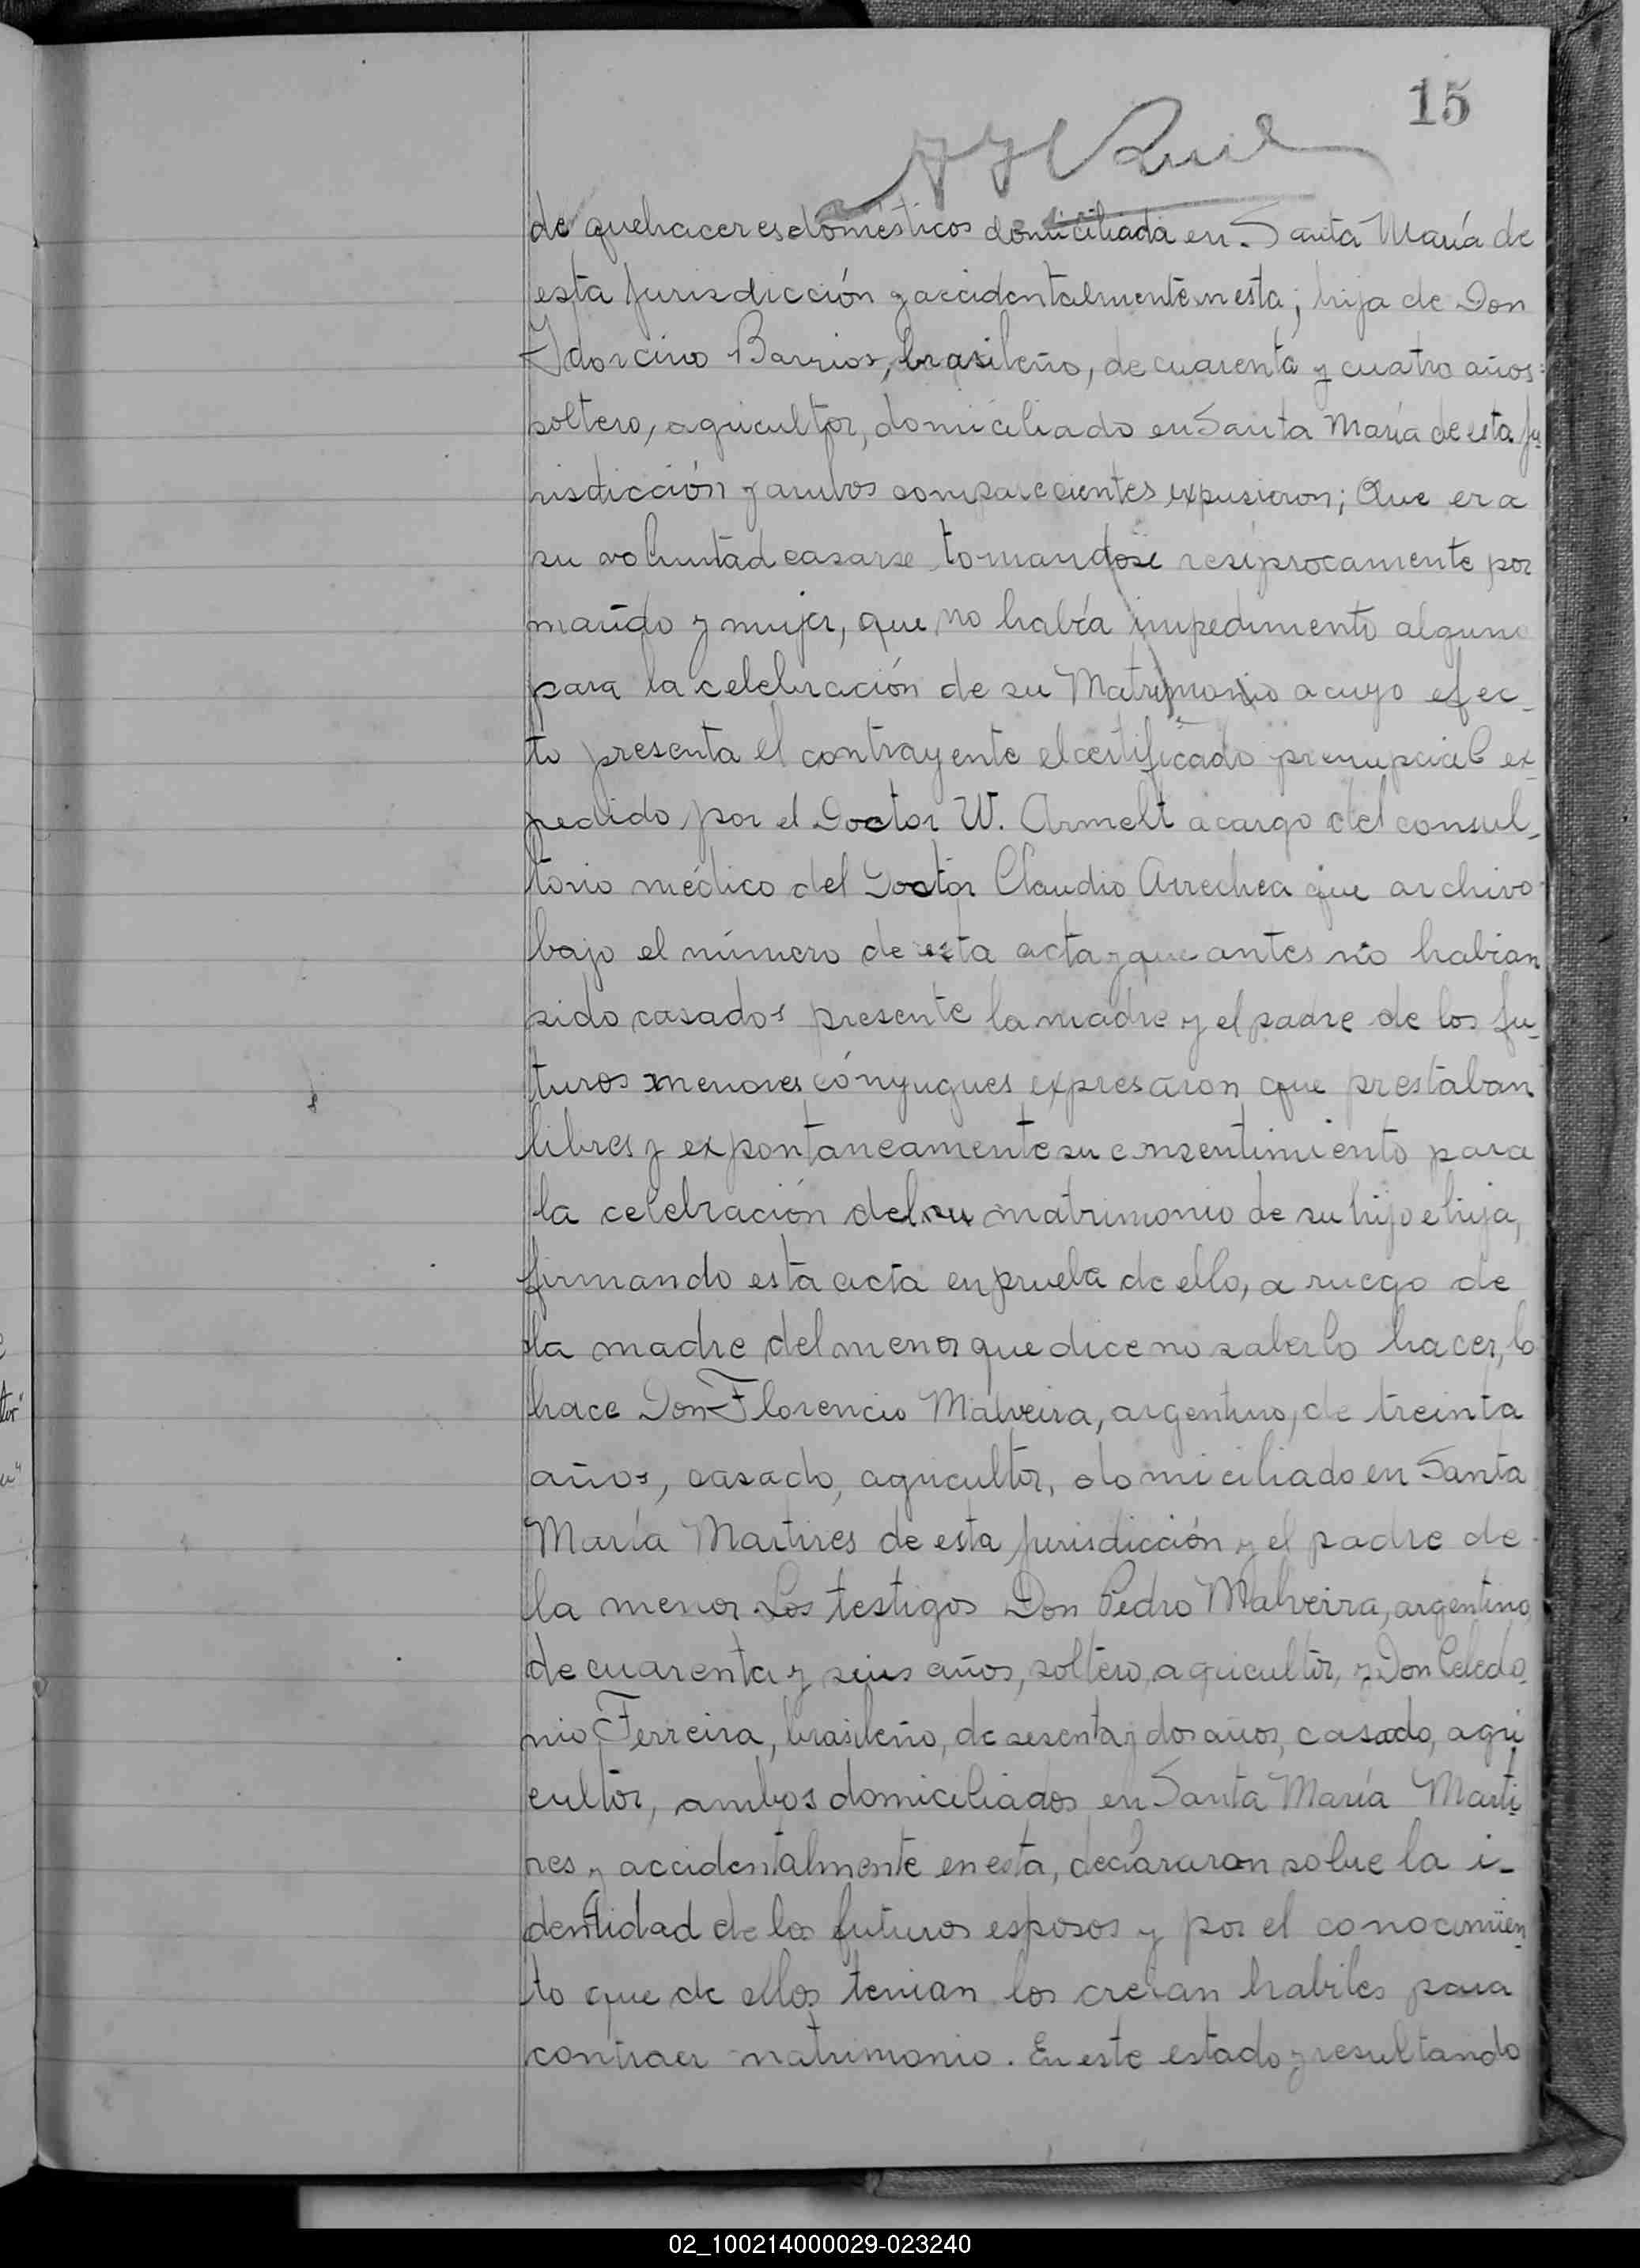 15
de quehaceres domésticos domiciliada en Santa María de
esta jurisdicción y accidentalmente en esta; hija de Don
Idorcino Barrios, brasileño, de cuarenta y cuatro años
soltero, agricultor, domiciliado en Santa María de esta ju
risdicción y ambos comparecientes expusieron; Que era
su voluntad casarse tomandose resiprocamente por
marido y mujer, que no había impedimento alguno
para la celebración de su Matrimonio a cuyo efec_
to presenta el contrayente el certificado prenupcial ex_
pedido por el Doctor W. Armelt a cargo del consul_
torio médico del Doctor Claudio Arrechea que archivo
bajo el número de esta acta y que antes no habian
sido casados presente la madre y el padre de los fu_
turos menores cónyugues expresaron que prestaban
libres y expontaneamente su consentimiento para
la celebración del su matrimonio de su hijo e hija,
firmando esta acta en prueba de ello, a ruego de
la madre del menor que dice no saberlo hacer, lo
hace Don Florencio Malveira, argentino, de treinta
años, casado, agricultor, domiciliado en Santa
María Martires de esta jurisdicción y el padre de
la menor Los testigos Don Pedro Malveira, argentino
de cuarenta y seis años, soltero, agricultor, y Don Celedo_
nio Ferreira, brasileño, de sesenta y dos años, casado, agri
cultor, ambos domiciliados en Santa María Marti
res y accidentalmente en esta, declararon sobre la i_
dentidad de los futuros esposos y por el conocimien_
to que de ellos tenian los creian habiles para
contraer matrimonio. En este estado y resultando
02_100214000029-023240